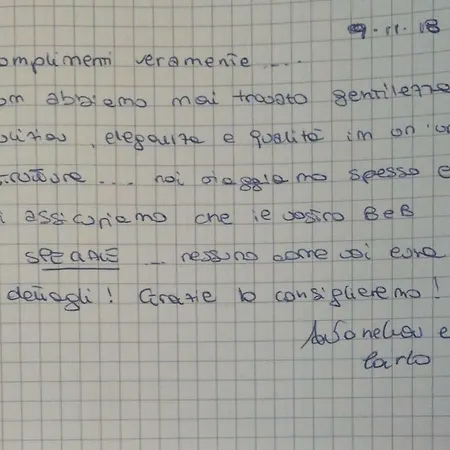 9.11.18
omplimenti veramente ....
on abbiamo mai trovato gentilezza
pulizia, eleganza e qualità in un'un
struttura .... noi viaggiamo spesso e
i assicuriamo che il vostro BeB
SPECIALE ... nessuno come voi cura
dettagli! Grazie lo consiglieremo!
Antonella e
Carlo